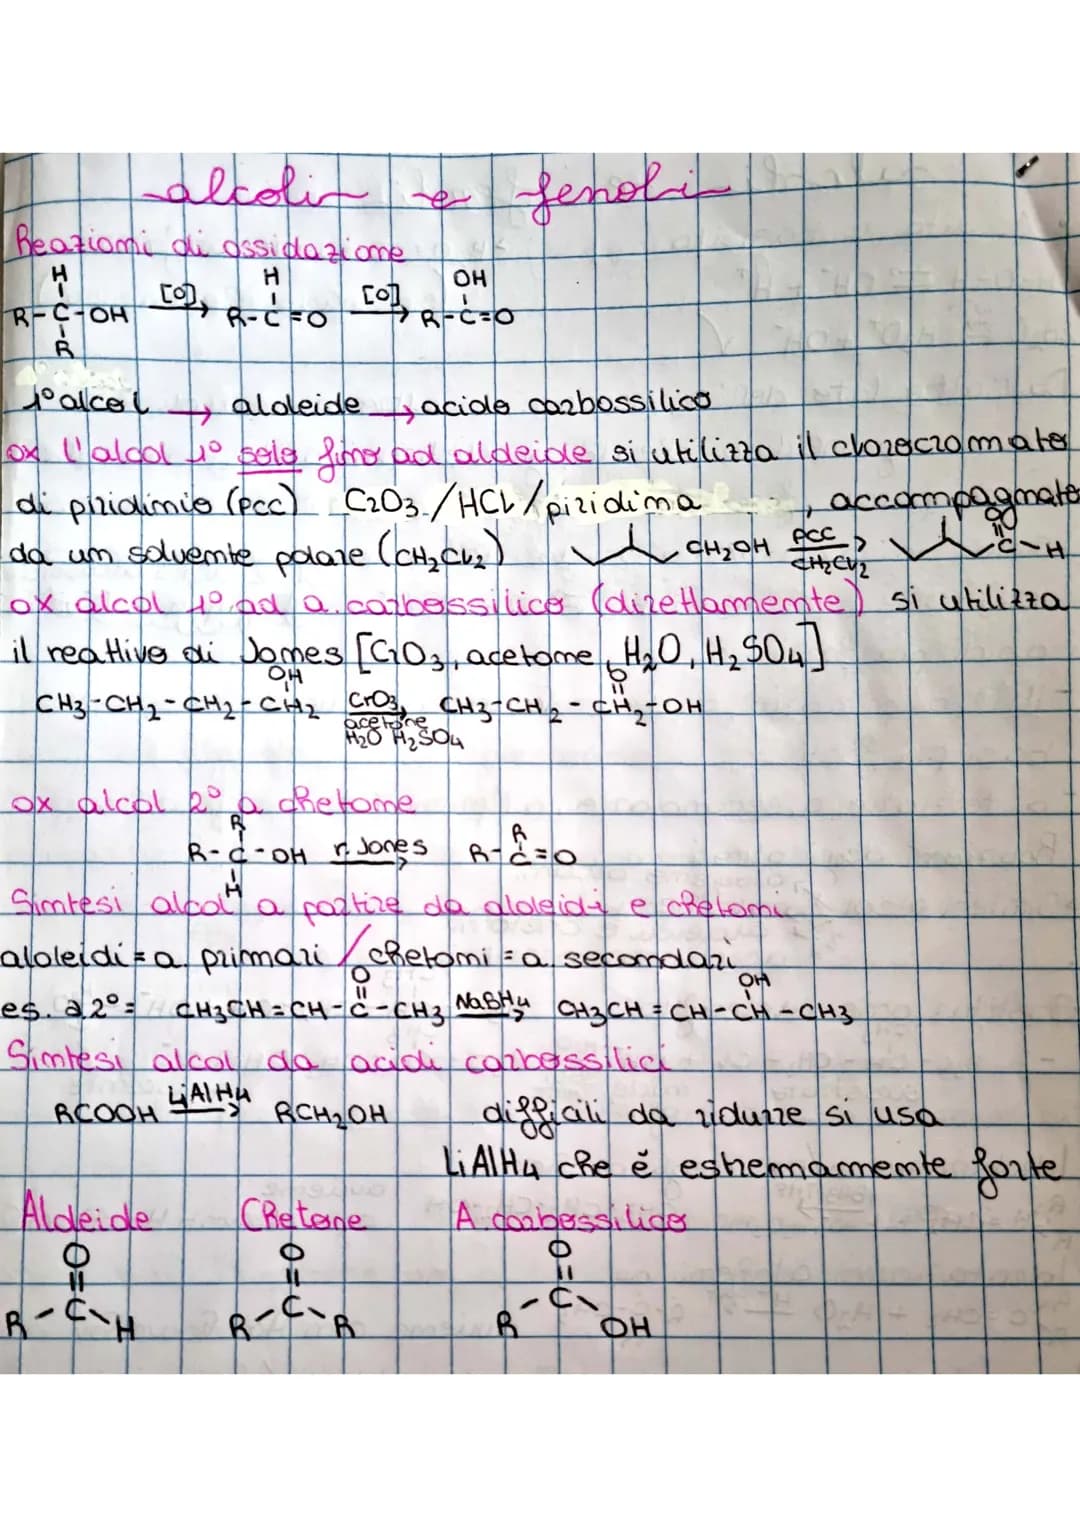 alcoli e fenoli
Reazioni di ossidazione
H H OH
R-C-OH [O]→ R-C=O [O]→ R-C=O
R
1° alcol → aldeide → acido carbossilico
ox l'alcol 1° solo fino ad aldeide si utilizza il clorocromato
di piridinio (pcc) C2O3/HCl/piridina, accompagnato
da un solvente polare (CH2Cl2) CH2OH PCC→ CH2Cl2 O C-H
ox alcol 1° ad a. carbossilico (direttamente) si utilizza
il reattivo di Jones [CrO3, acetone, H2O, H2SO4]
OH O
CH3-CH2-CH2-CH2 CrO3, CH3-CH2-CH2-OH
acetone
H2O H2SO4
ox alcol 2° a chetone
R R
R-C-OH r. Jones→ R-C=O
H
Sintesi alcol a partire da aldeidi e chetoni
aldeidi = a. primari / chetoni = a. secondari
O OH
es. a 2° = CH3CH=CH-C-CH3 NaBH4→ CH3CH=CH-CH-CH3
Sintesi alcol da acidi carbossilici
RCOOH LiAlH4→ RCH2OH difficili da ridurre si usa
LiAlH4 che é estremamente forte
Aldeide Chetone A. carbossilico
O O O
R-C-H R-C-R R-C-OH